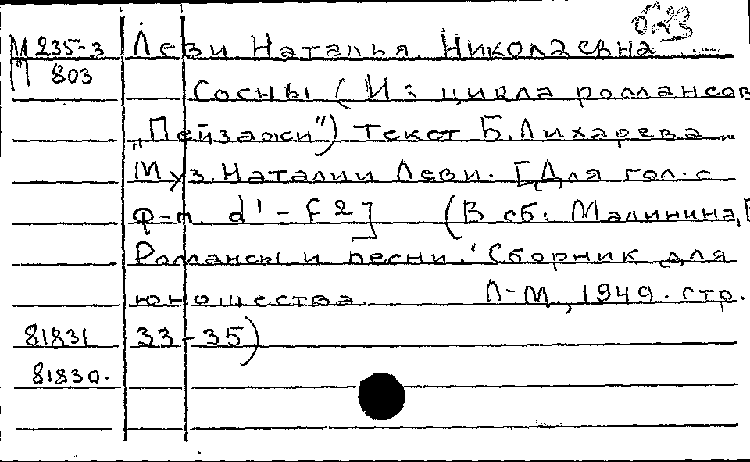 М 235-3 Леви Наталья Николаевна
П 803
Сосны (Из цикла романсов
„Пейзажи") Текст Б. Лихарева
Муз. Наталии Леви. [Для гол. с
ф-п. d' - f2] (В сб. Малинина,
Романсы и песни. Сборник для
юношества Л-М, 1949. стр.
81831 33-35)
81830.